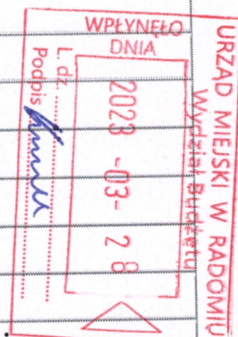 URZĄD MIEJSKI W RADOMIU
Wydział Budżetu
WPŁYNĘŁO
DNIA
2023 -03- 28
L. dz.
Podpis